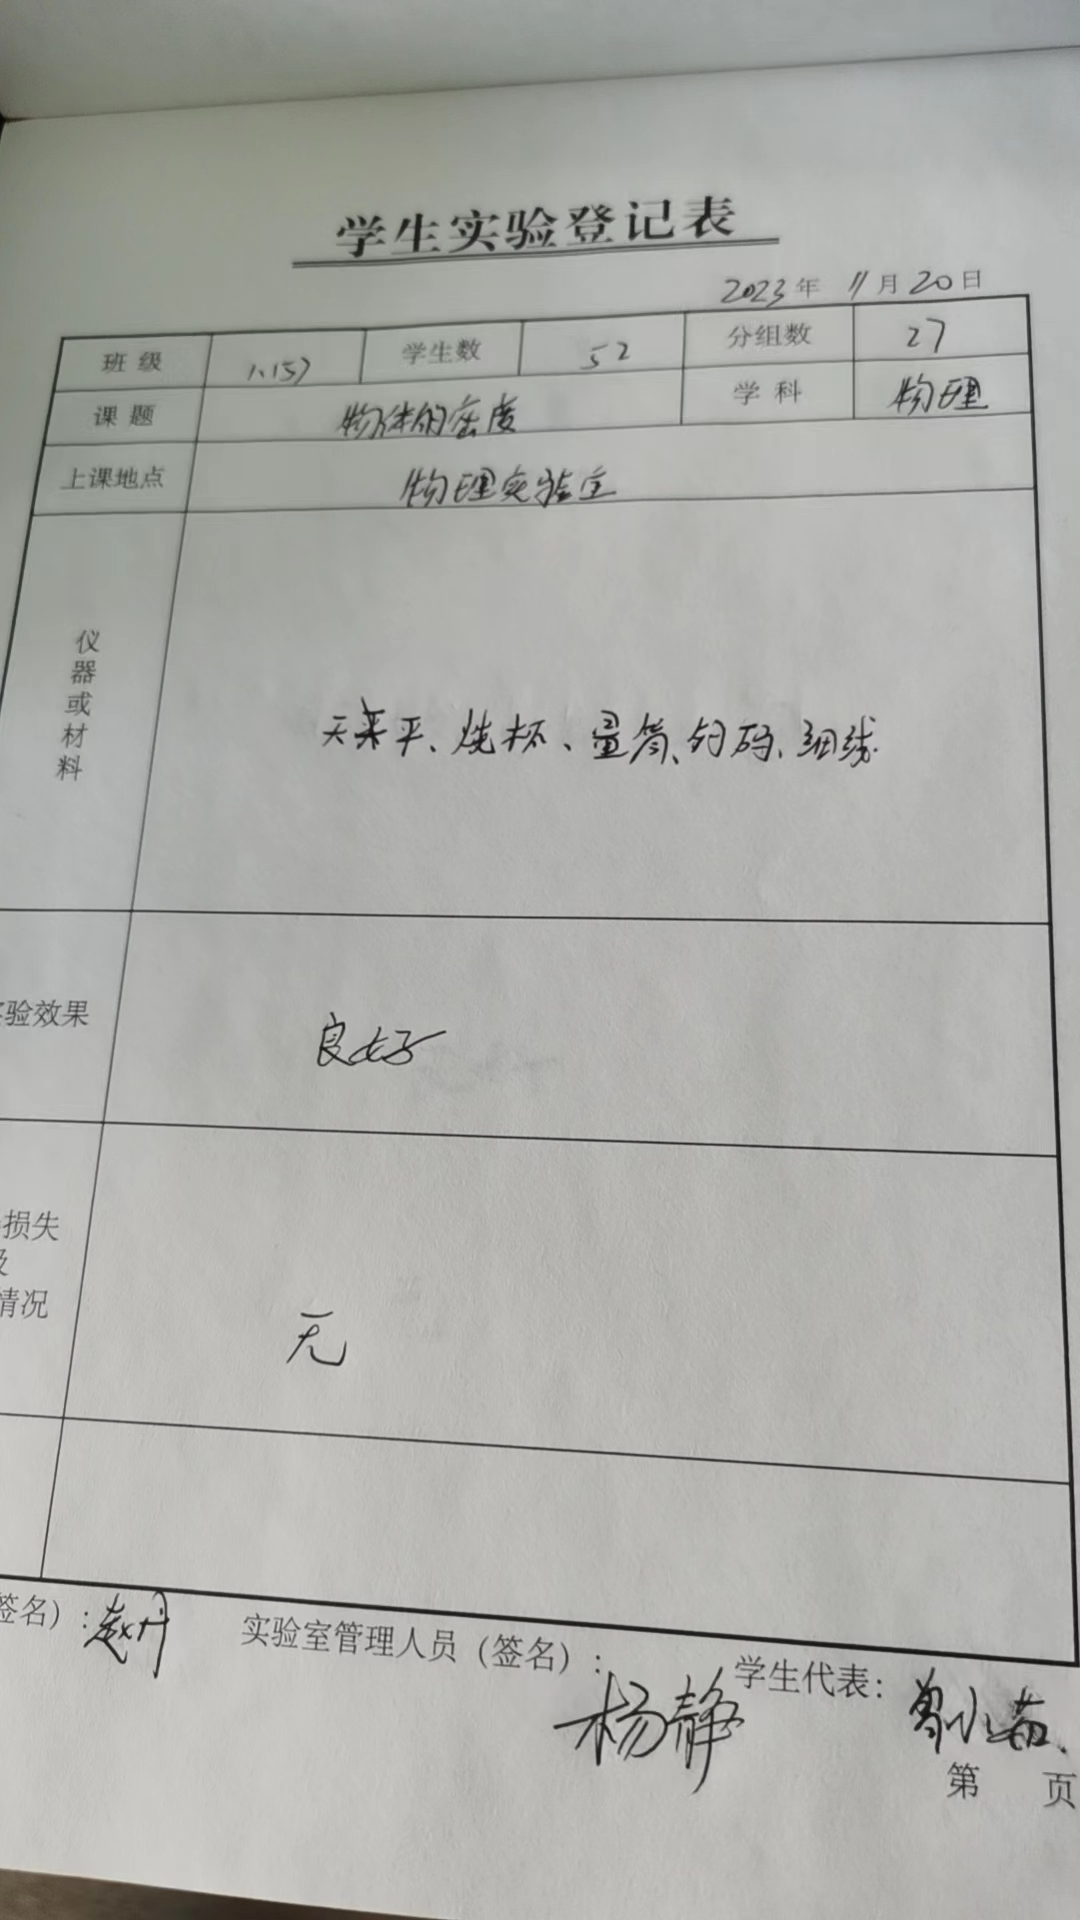 学生实验登记表
2023年 11月20日
班级 学生数 52 分组数 27
课题 物体的密度 学科 物理
上课地点 物理实验室
仪器或材料 天平、烧杯、量筒、钩码、细线
验效果 良好
损失
及
情况 无
签名）：赵丹 实验室管理人员（签名）：杨静 学生代表：曾小茹
第 页